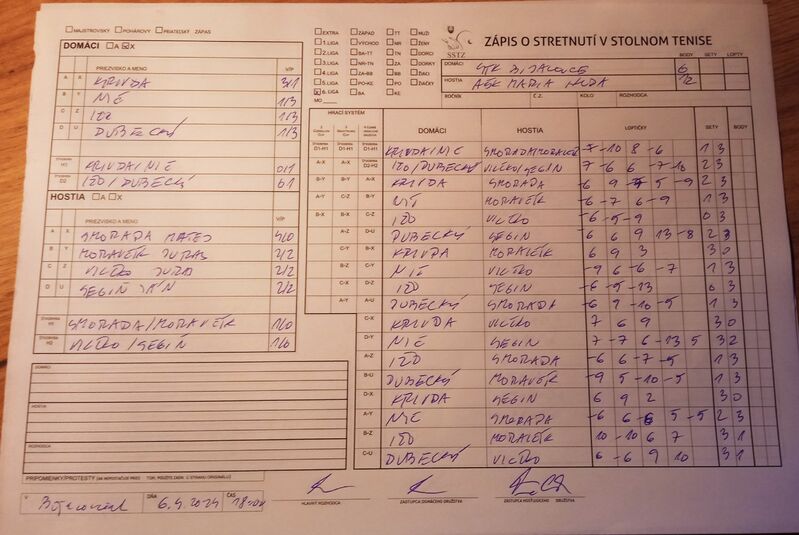 MAJSTROVSKÝ POHÁROVÝ PRIATEĽSKÝ ZÁPAS
DOMÁCI A X
PRIEZVISKO A MENO V/P
A X KRIVDA 3/1
B Y NIŠ 1/3
C Z IŽO 1/3
D U DUBECKÝ 1/3
ŠTVORHRA H1 KRIVDA/NIŠ 0/1
ŠTVORHRA D2 IŽO/DUBECKÝ 0/1
HOSTIA A X
PRIEZVISKO A MENO V/P
A X SMORADA MATEJ 4/0
B Y MORAVČÍK JURAJ 2/2
C Z VICIKO JURAJ 2/2
D U SEGIŇ JÁN 2/2
ŠTVORHRA H1 SMORADA/MORAVČÍK 1/0
ŠTVORHRA H2 VICIKO/SEGIŇ 1/0
DOMÁCI
HOSTIA
ROZHODCA
PRIPOMIENKY/PROTESTY
V DŇA 6.4.2024 ČAS 18:00
EXTRA ZÁPAD TT MUŽI
1. LIGA VÝCHOD NR ŽENY
2. LIGA BA-TT TN DORCI
3. LIGA NR-TN ZA DORKY
4. LIGA ZA-BB BB ŽIACI
5. LIGA PO-KE PO ŽIAČKY
6. LIGA BA KE
MO
SSTZ
ZÁPIS O STRETNUTÍ V STOLNOM TENISE
BODY SETY LOPTY
DOMÁCI STK 6
HOSTIA AŠK MARIA HUTA 12
ROČNÍK Č.Z. KOLO ROZHODCA
HRACÍ SYSTÉM
DOMÁCI HOSTIA LOPTIČKY SETY BODY
D1-H1 D1-H1 D1-H1 KRIVDA/NIŠ SMORADA/MORAVČÍK -7 -10 8 -6 1 3
A-X D2-H2 IŽO/DUBECKÝ VICIKO/SEGIŇ -7 -6 6 -7 -10 2 3
B-Y B-Y A-X KRIVDA SMORADA 6 9 -7 -5 -9 2 3
A-Y C-Z B-Y NIŠ MORAVČÍK -6 -7 6 -9 1 3
B-X B-X C-Z IŽO VICIKO -6 -5 -9 0 3
A-Z D-U DUBECKÝ SEGIŇ 6 6 9 13 -8 2 3
C-Y B-X KRIVDA MORAVČÍK 6 9 3 3 0
B-Z C-Y NIŠ VICIKO -9 6 -6 -7 1 3
C-X D-Z IŽO SEGIŇ -6 -5 -13 0 3
A-Y A-U DUBECKÝ SMORADA -6 9 -10 -5 1 3
C-X KRIVDA VICIKO 7 6 9 3 0
D-Y NIŠ SEGIŇ -7 -7 6 13 5 3 2
A-Z IŽO SMORADA -6 6 -7 -5 1 3
B-U DUBECKÝ MORAVČÍK -9 5 -10 -5 1 3
D-X KRIVDA SEGIŇ 6 9 2 3 0
A-Y NIŠ SMORADA -6 6 6 5 -5 2 3
B-Z IŽO MORAVČÍK 10 -10 6 7 3 1
C-U DUBECKÝ VICIKO 6 -6 9 10 3 1
HLAVNÝ ROZHODCA ZÁSTUPCA DOMÁCEHO DRUŽSTVA ZÁSTUPCA HOSŤUJÚCEHO DRUŽSTVA